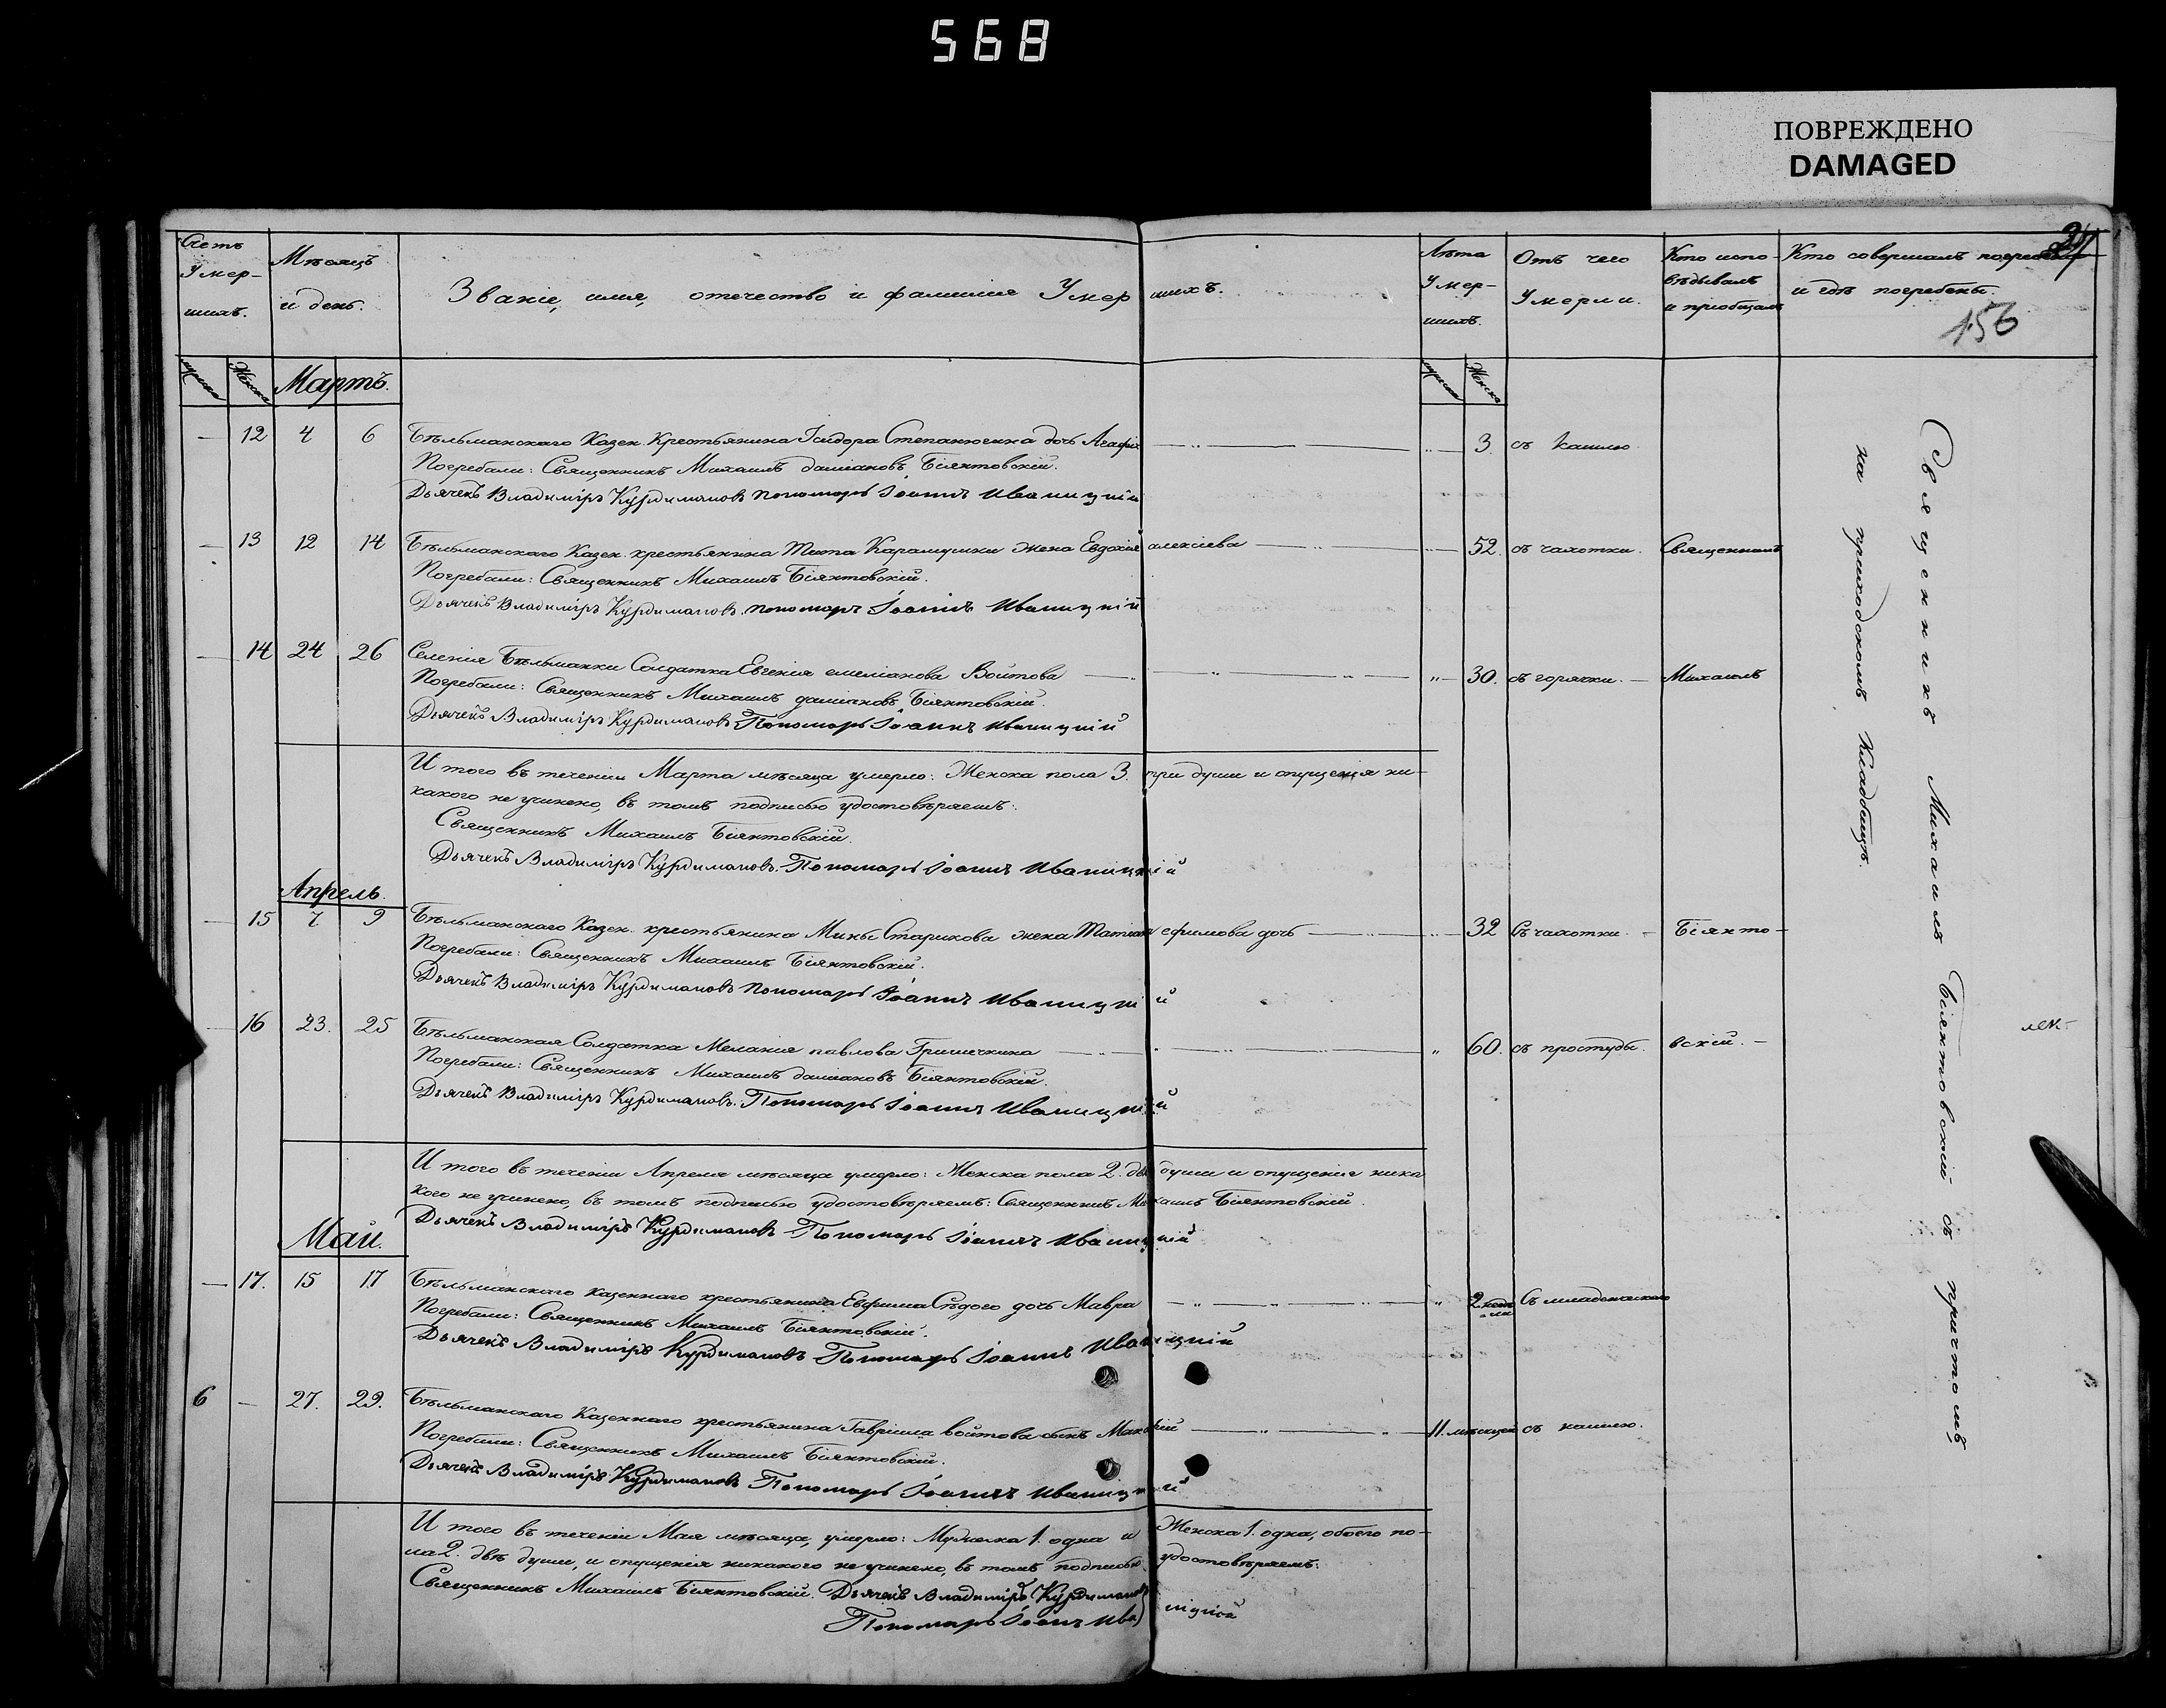 568
ПОВРЕЖДЕНО
DAMAGED
Счетъ Умер-шихъ.
Мѣсяцъ и день.
Званіе, имя, отечество и фамилія Умершихъ.
Лѣта Умер-шихъ.
Отъ чего Умерли.
Кто испо-вѣдывалъ и пріобщалъ
Кто совершалъ погребеніе и гдѣ погребены.
156
Мартъ.
— 12 4 6 Бѣльманскаго Казен. Крестьянина Ісидора Степаненка дочь Агафія — 3. съ кашлю
Погребали: Священникъ Михаилъ даміановъ Біянтовскій.
Дьячекъ Владиміръ Курдимановъ пономарь Іоаннъ Иваницкій
— 13 12 14 Бѣльманскаго Казен. крестьянина Тита Карамушки жена Евдокія алексіева — 52. съ чахотки. Священникъ
Погребали: Священникъ Михаилъ Біянтовскій.
Дьячекъ Владиміръ Курдимановъ. пономарь Іоаннъ Иваницкій
— 14 24 26 Селенія Бѣльманки Солдатка Евгенія емеліанова Войтова — 30. съ горячки. — Михаилъ
Погребали: Священникъ Михаилъ даміановъ Біянтовскій.
Дьячекъ Владиміръ Курдимановъ Пономарь Іоаннъ Иваницкій
И того въ теченіи Марта мѣсяца умерло: Женска пола 3. три души и опущенія ни-
какого не учинено, въ томъ подписью удостовѣряемъ:
Священникъ Михаилъ Біянтовскій.
Дьячекъ Владиміръ Курдимановъ. Пономарь Іоаннъ Иваницкій
Апрель.
— 15 7 9 Бѣльманскаго Казен. крестьянина Мины Старикова жена ефимова дочь — 32 Съ чахотки. — Біянто-
Погребали: Священникъ Михаилъ Біянтовскій.
Дьячекъ Владиміръ Курдимановъ пономарь Іоаннъ Иваницкій
— 16 23. 25 Бѣльманская Солдатка Меланія павлова Гришечкина — 60. съ простуды. вскій. —
Погребали: Священникъ Михаилъ даміановъ Біянтовскій.
Дьячекъ Владиміръ Курдимановъ. Пономарь Іоаннъ Иваницкій
И того въ теченіи Апреля мѣсяца умерло: Женска пола 2. двѣ души и опущенія ника
кого не учинено, въ томъ подписью удостовѣряемъ: Священникъ Михаилъ Біянтовскій.
Дьячекъ Владиміръ Курдимановъ Пономарь Іоаннъ Иваницкій
Май.
— 17. 15 17 Бѣльманскаго казеннаго крестьянина Евфима Сѣдого дочь Мавра — 2. Съ младенческаго
Погребали: Священникъ Михаилъ Біянтовскій.
Дьячекъ Владиміръ Курдимановъ Пономарь Іоаннъ Иваницкій
6 — 27. 29. Бѣльманскаго Казеннаго крестьянина Гавріила войтова сынъ — 11. мѣсяцей съ кашлю.
Погребали: Священникъ Михаилъ Біянтовскій.
Дьячекъ Владиміръ Курдимановъ Пономарь Іоаннъ Иваницкій
И того въ теченіи Мая мѣсяца, умерло: Мужеска 1. одна и Женска 1. одна, обоего по-
ла 2. двѣ души, и опущенія никакого не учинено, въ томъ подписью удостовѣряемъ:
Священникъ Михаилъ Біянтовскій. Дьячекъ Владиміръ Курдимановъ
Пономарь Іоаннъ Иваницкій
Священникъ Михаилъ Біянтовскій съ причтомъ
на приходскомъ Кладбищѣ.